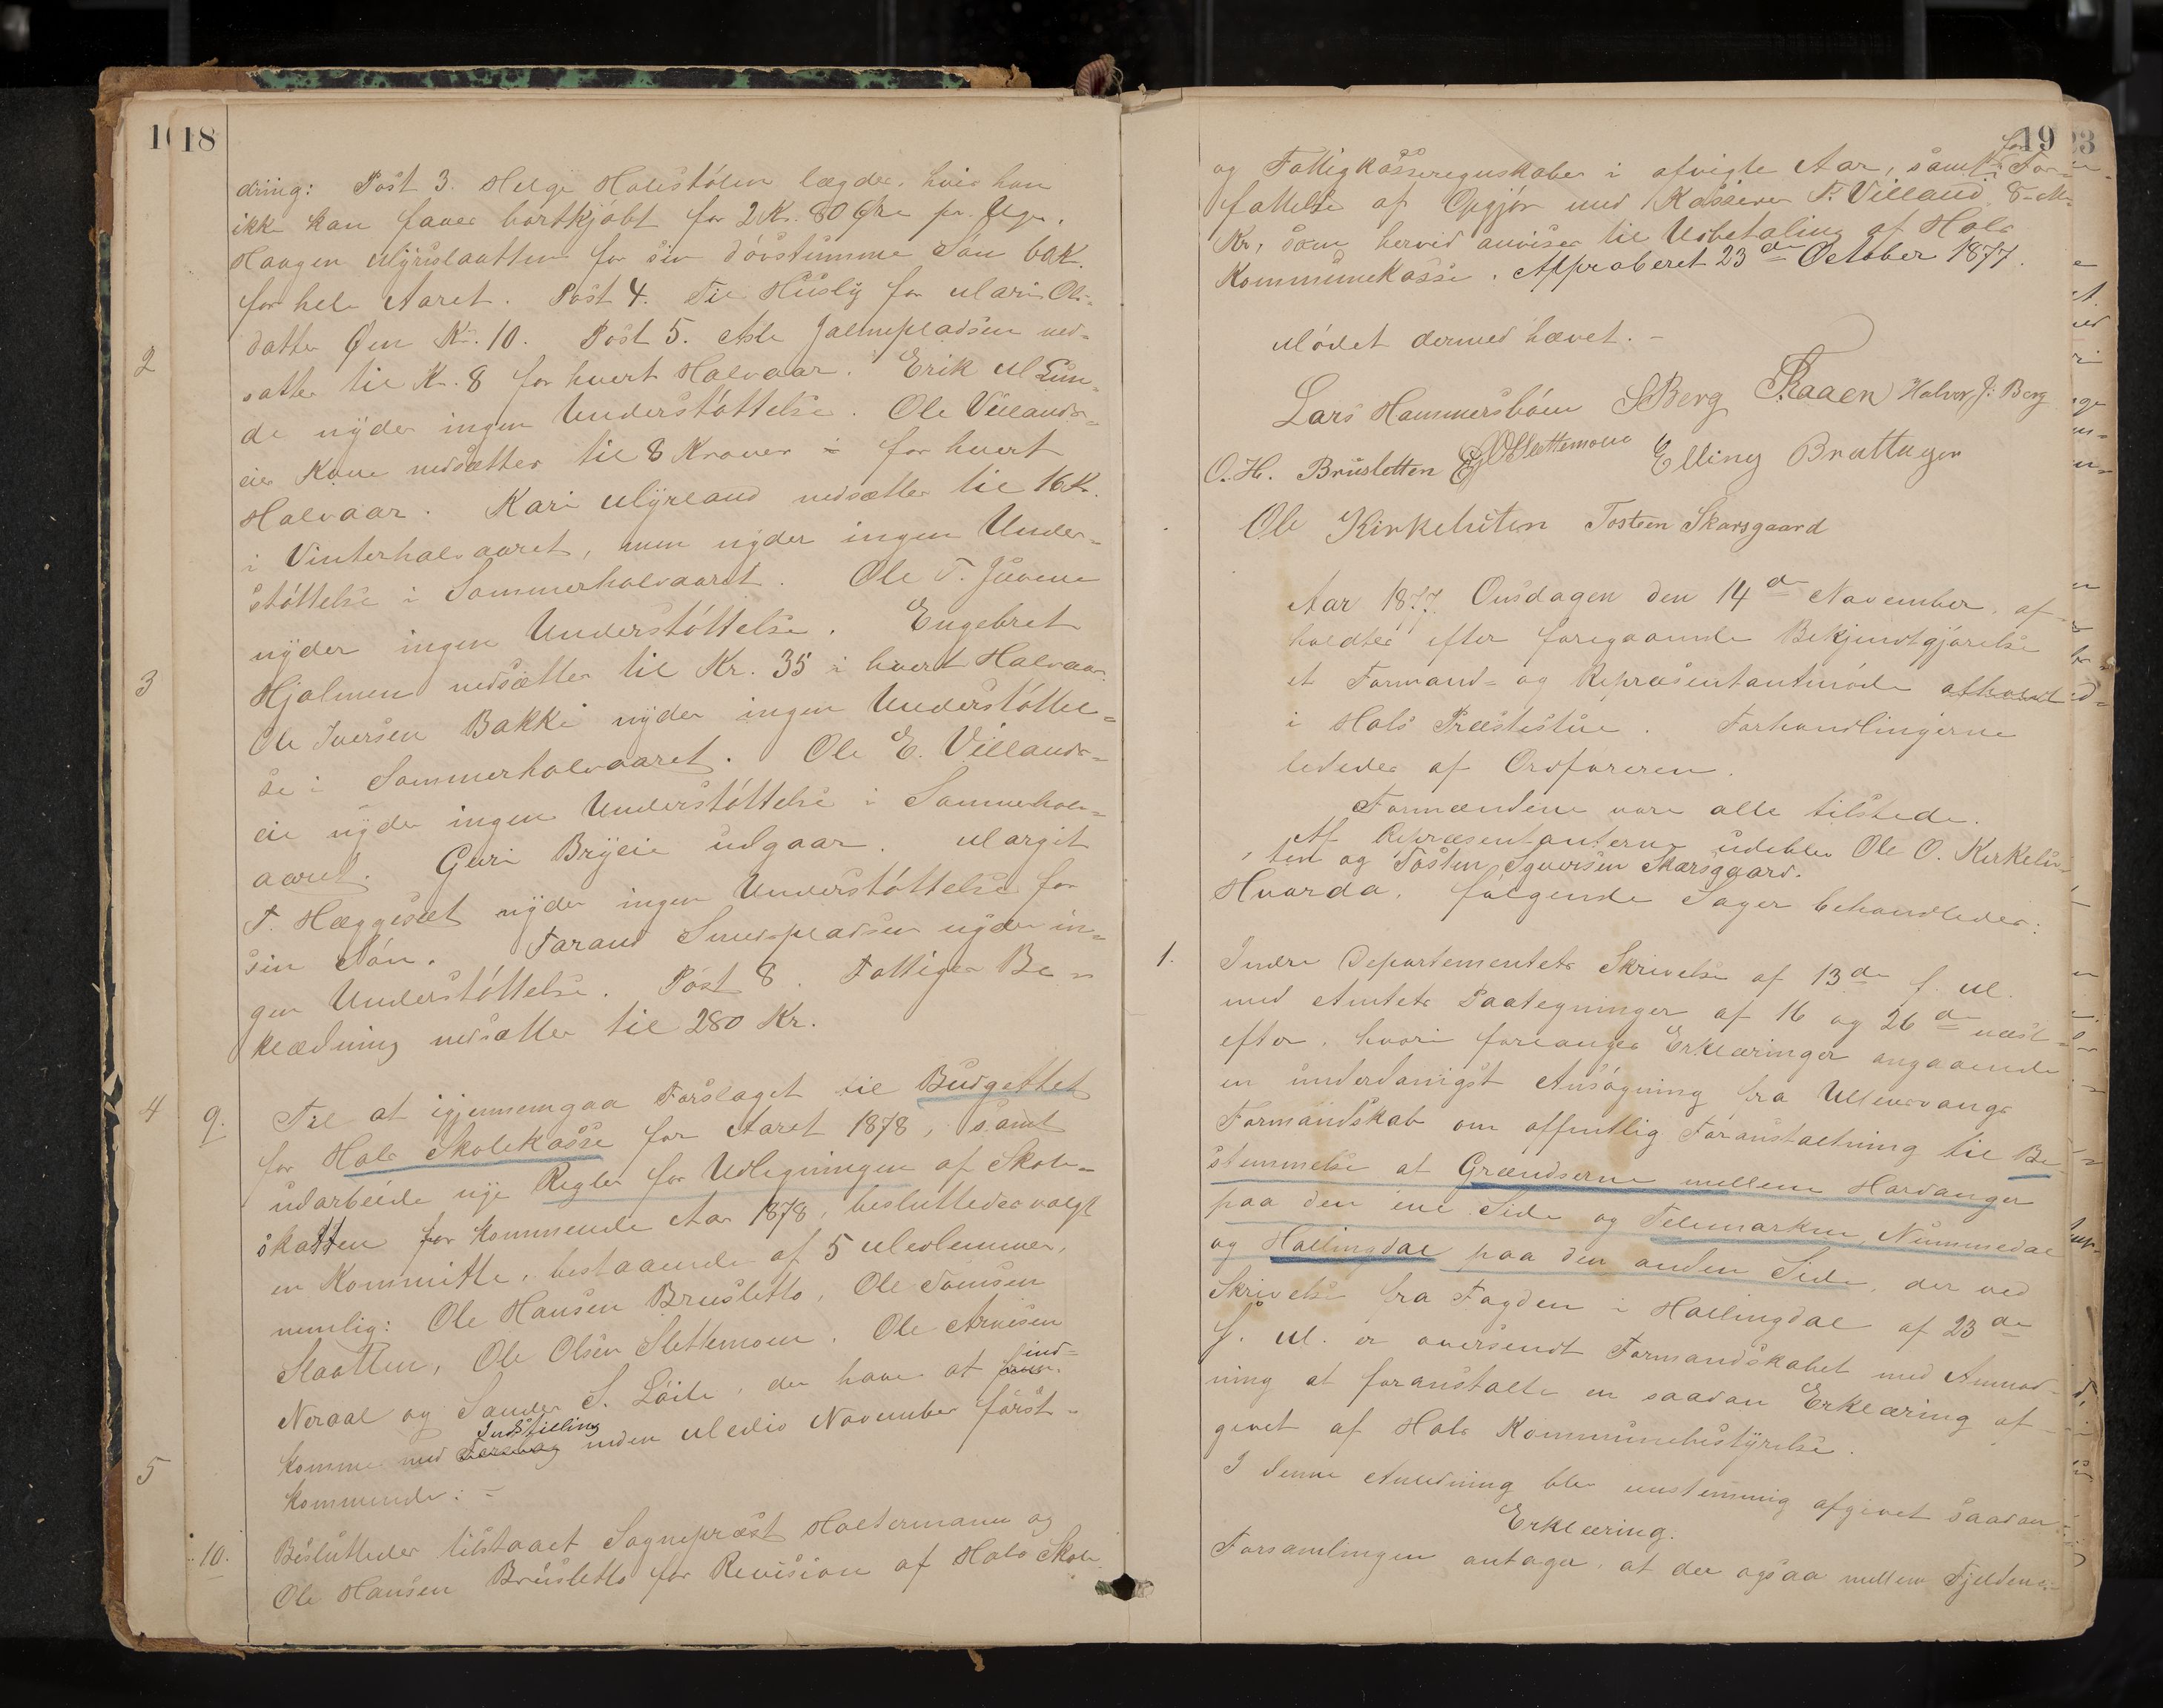 18
dring: Post 3. Helge Holestølen lægdes, hvis han
ikke kan faaes bortkjøbt for 2 Kr. 80 Øre pr. Uge.
Haagen Myrslaatten for sin døvstumme Søn 60 K.
for hele Aaret. Post 4. Til Huslÿ for Mari Ols-
datter Øen Kr. 10. Post 5. Asle Jalmepladsen ned-
sættes til Kr. 8 for hvert Halvaar. Erik M Lun-
de nÿder ingen Understøttelse. Ole Villands-
eies Kone nedsættes til 8 Kroner i for hvert
Halvaar. Kari Mÿrland nedsættes til 16 Kr.
i Vinterhalvaaret, men nÿder ingen Under-
støttelse i Sommerhalvaaret. Ole T. Juvene
nÿder ingen Understøttelse. Engebret
Hjalmen nedsættes til Kr. 35 i hvert Halvaar.
Ole Iversen Bakke nÿder ingen Understøttel-
se i Sommerhalvaaret. Ole E. Villands-
eie nÿder ingen Understøttelse i Sommerhalv-
aaret. Guri Brÿeie udgaar. Margit
T. Hæggeset nÿder ingen Understøttelse for
sin Søn. Tarand Smedspladsen nÿder in-
gen Understøttelse. Post 8. Fattiges Be-
klædning nedsættes til 280 Kr.
9. Til at igjennemgaa Forslaget til Budgettet
for Hols Skolekasse for Aaret 1878, samt
udarbeide nÿe Regler for Udligningen af Skole-
skatten for kommende Aar 1878, beslutteds valgt
en Kommitte, bestaaende af 5 Medlemmer,
nemlig: Ole Hansen Brusletto, Ole Toinsen
Slaatten, Ole Olsen Slettemoen, Ole Arnesen
Noraal og Sander S. Løile, der have at ind-
komme med Indstilling inden Medio November først-
kommende: -
10. Besluttedes tilstaaet Sognepræst Holtermann og
Ole Hansen Brusletto for Revision af Hols Skole
2
3
4
5
19
23
og Fattigkasseregnskaber i afvigte Aar, samt for For-
fattelse af Opgjør med Kasserer T. Villand, 8-
Kr, som herved anvises til Udbetaling af Hols
Kommunekasse. Approberet 23de October 1877.
Mødet dermed hævet. -
Lars Hammersbøen S Berg Raaen Halvor J: Berg
O. H. Brusletten Slettemoen Elling Brattegor
Ole Kirkeluten Tosten Skarsgaard
Aar 1877. Onsdagen den 14de November, af-
holdtes efter foregaaende Bekjendtgjørelse
et Formand- og Repræsentantmøde afholdt
i Hols Præstestue. Forhandlingerne
lededes af Ordføreren.
Formændene vare alle tilstede.
Af Repræsentanterne udeblev Ole O. Kirkelu-
ten og Tosten Sgversen Skarsgaard.
Hvorda følgende Sager behandledes:
1. Indre Departementets Skrivelse af 13de f. M.
med Amtets Paategninger af 16 og 26de næst-
efter, hvori forlanges Erklæringer angaaende
en underdanigst Ansøgning fra Ullensvangs
Formandskab om offentlig Foranstaltning til Be-
stemmelse af Grændserne mellem Hardanger
paa den ene Side og Telemarken, Nummedal
og Hallingdal paa den anden Side, der ved
Skrivelse fra Fogden i Hallingdal af 23de
f. M. er oversendt Formandskabet med Anmod-
ning at foranstalte en saadan Erklæring af-
givet af Hols Kommunebestÿrelse.
I denne Anledning blev eenstemmig afgivet saadan
Erklæring.
Forsamlingen antager, at der ogsaa mellem Fjeldene